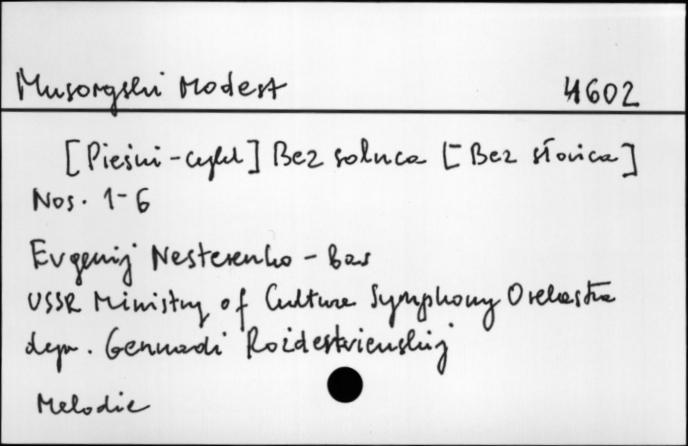 Musorgski Modest 4602
[Pieśni-cykl] Bez solnca [Bez słońca]
Nos. 1-6
Evgenij Nesterenko - bas
USSR Ministry of Culture Symphony Orchestra
dyr. Gennadi Rożdestvienskij
Melodie